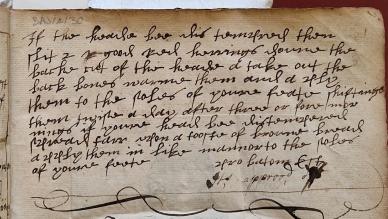 BAS/2/30
If the heade bee distempered then
slit 2 good Red herrings downe the
backe cut of the heade & take out the
back bones warme them and aply
them to the soles of youre feate shiftinge
them twise a day after three or fore mor
nings if youre head bee distempered
spread tarr upon a toste of browne bread
aplye them in like mannor to the soles
of youre feete
probatum Est
approv